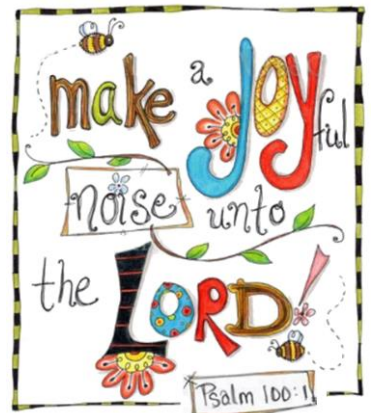 make a Joyful
noise unto
the LORD!
Psalm 100:1